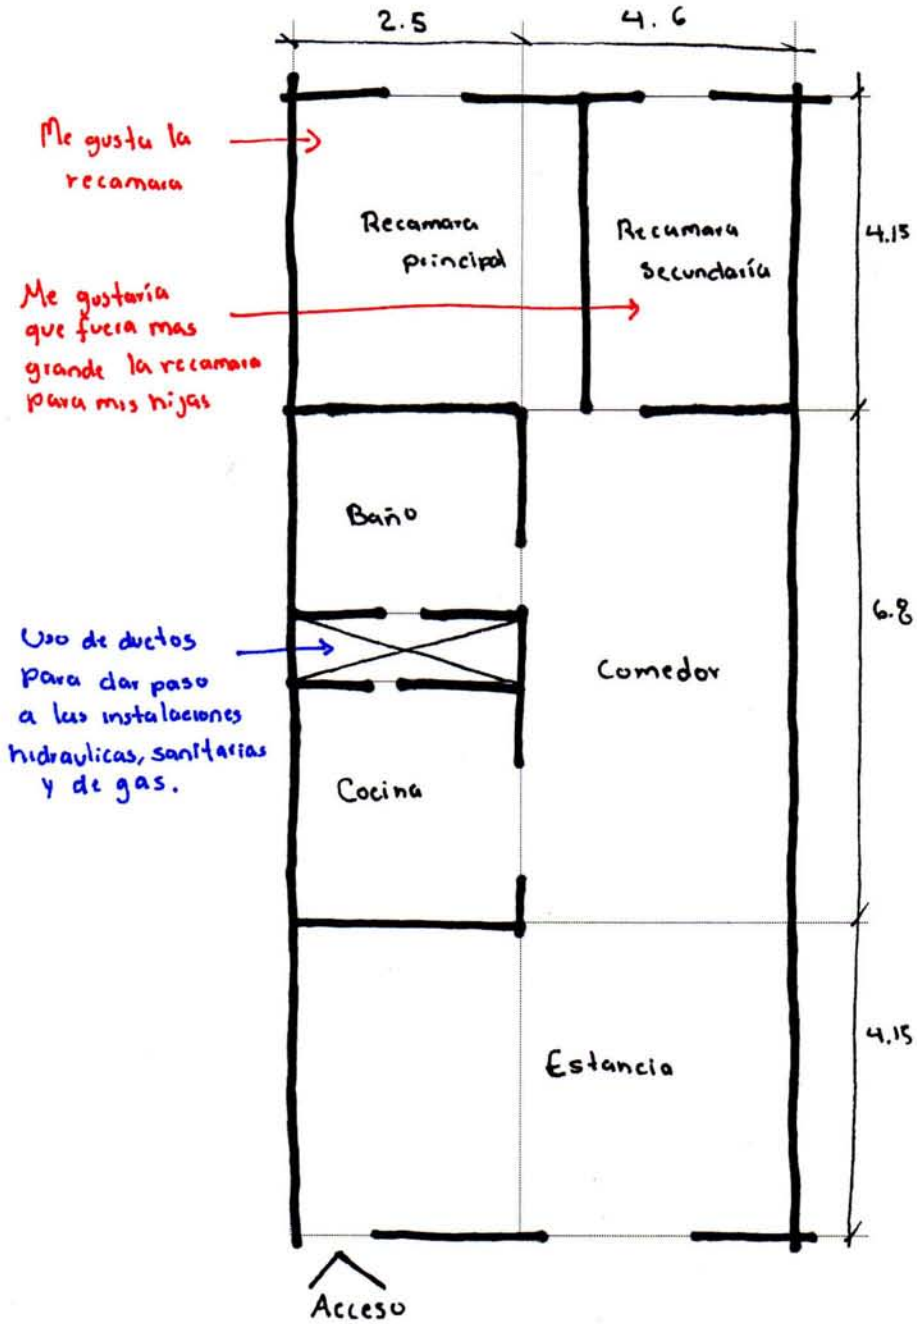 2.5
4.6
Me gusta la
recamara
Recamara
principal
Recamara
secundaría
4.15
Me gustaría
que fuera mas
grande la recamara
para mis hijas
Baño
Uso de ductos
para dar paso
a las instalaciones
hidraulicas, sanitarias
y de gas.
Comedor
6.8
Cocina
Estancia
4.15
Acceso